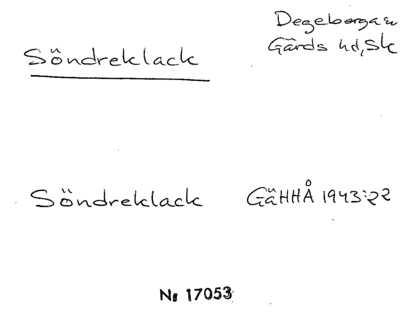 Söndreklack
Degeberga sn
Gärds hd, Sk
Söndreklack GäHHÅ 1943:22
Nr 17053